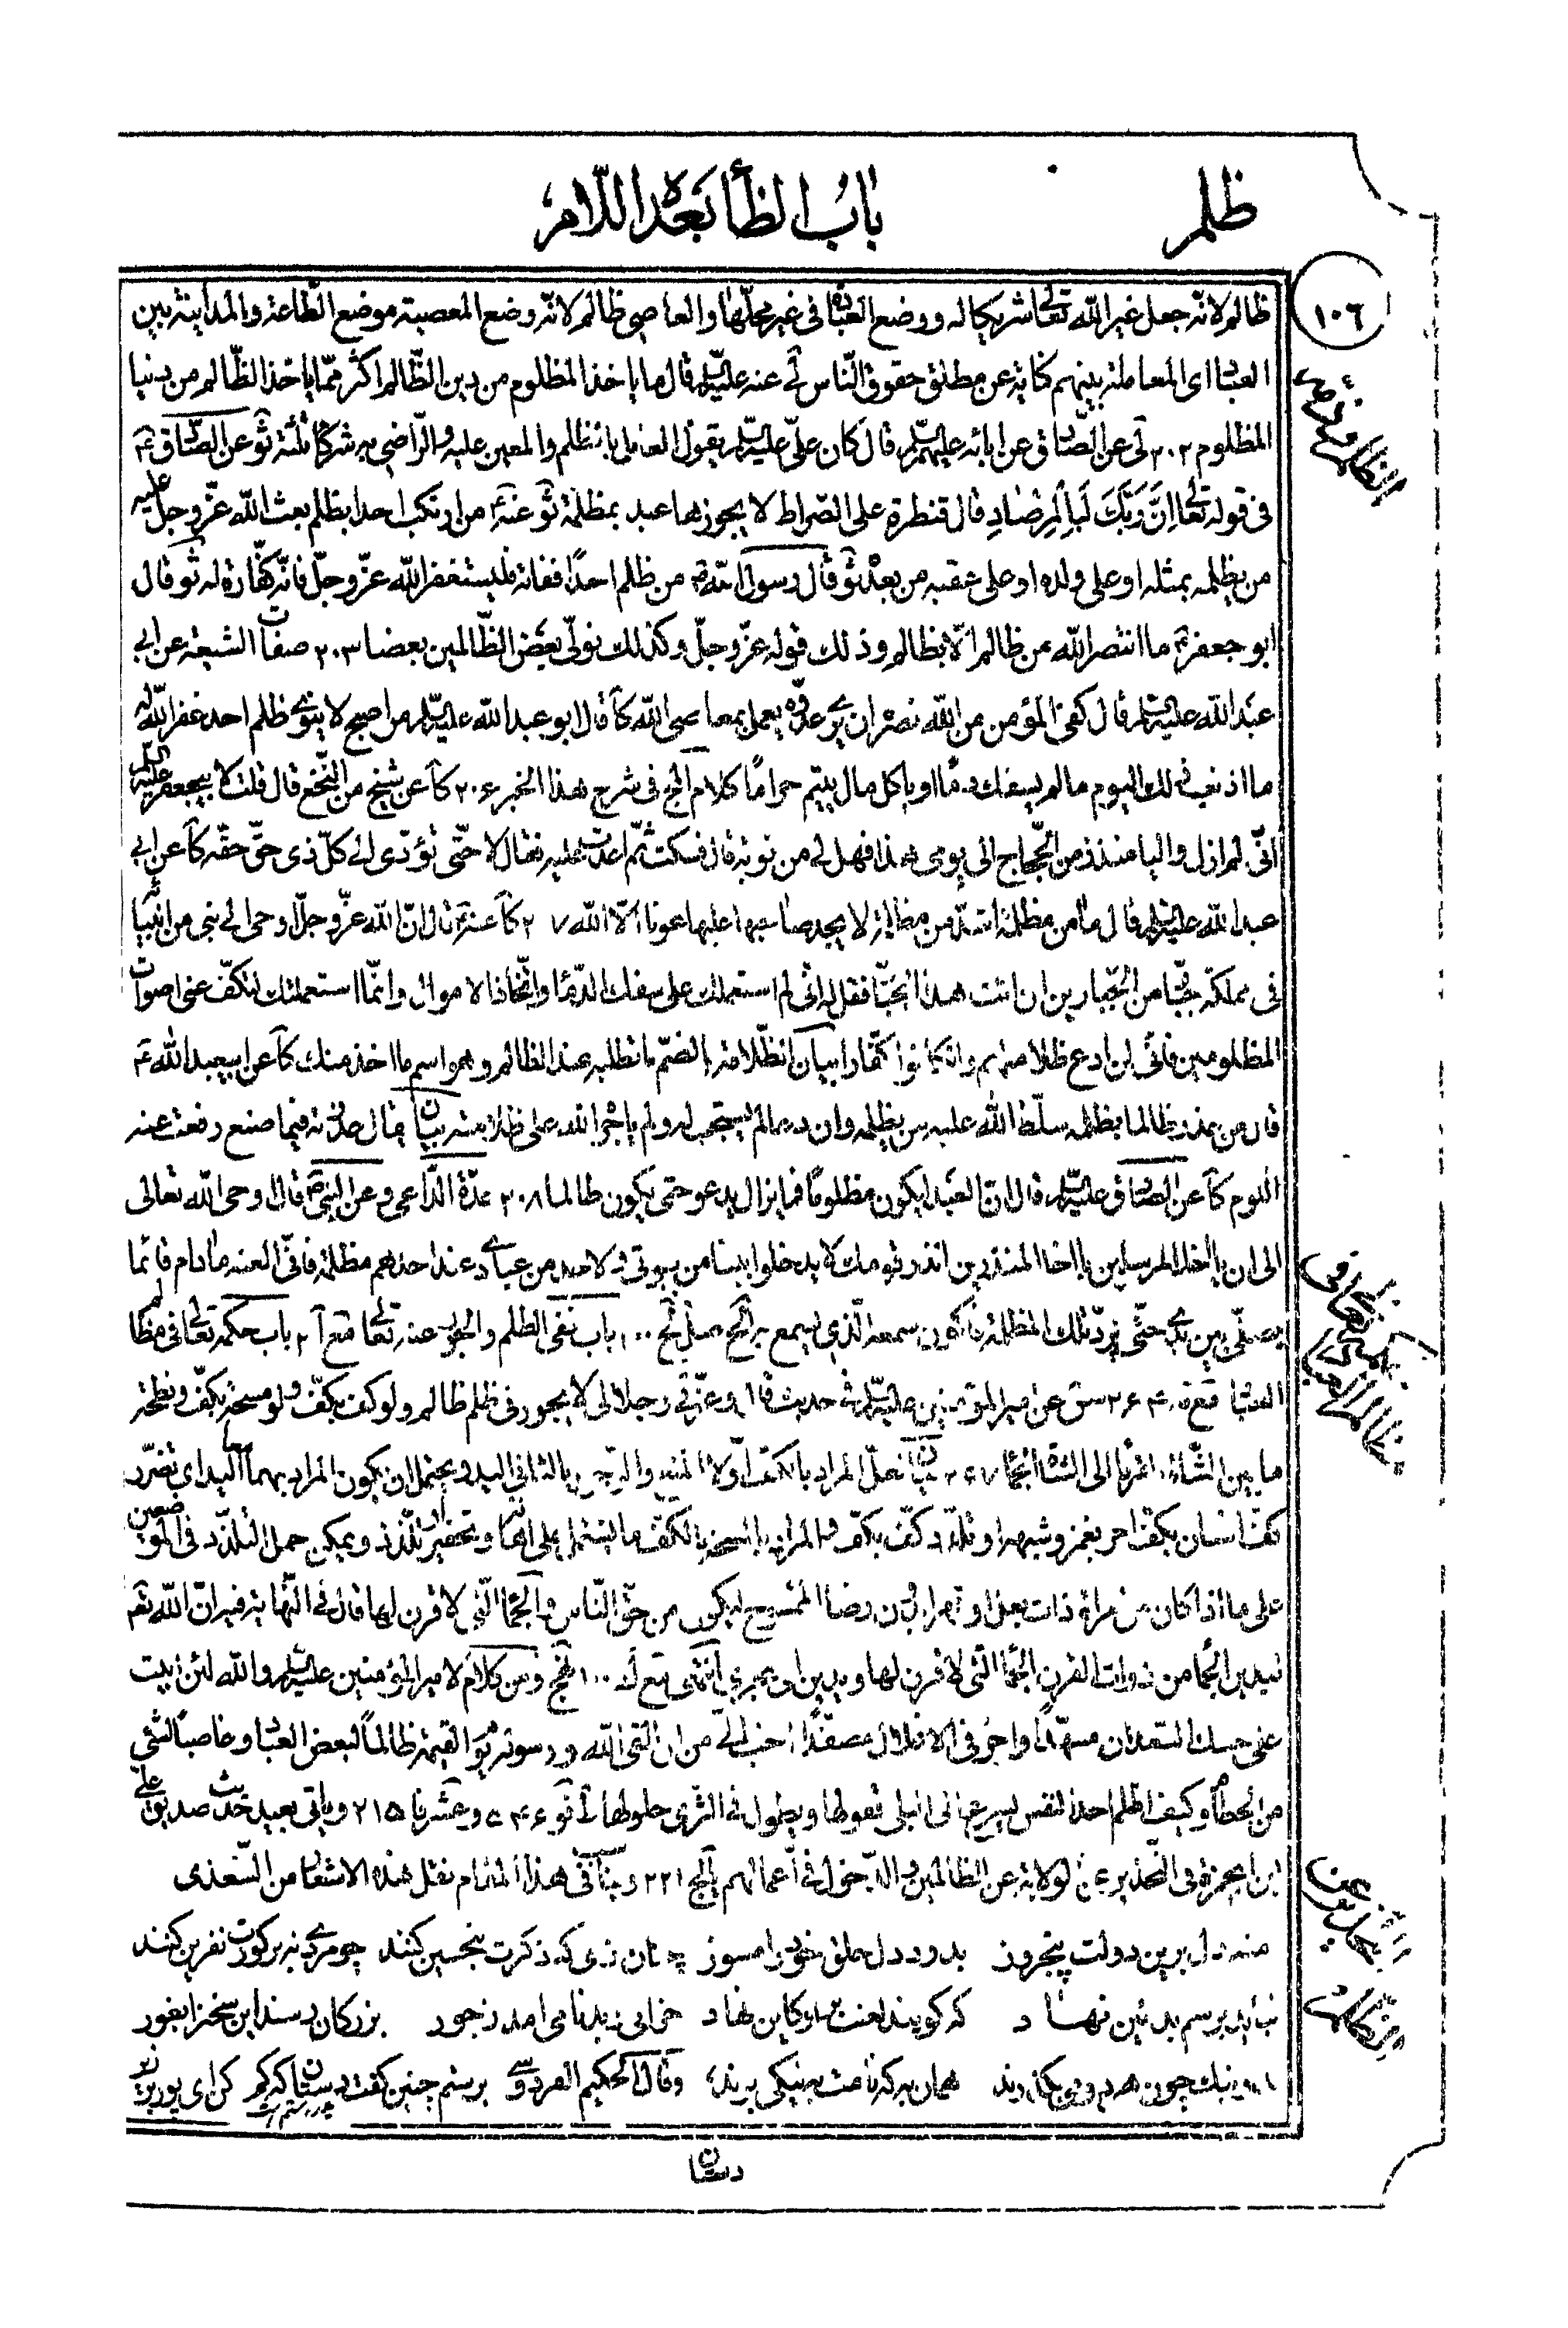 ظلم
باب الظاء بعده اللام
١٠٦
ظالم لانّه جعل غير الله تعالى شريكا له ووضع العبادة في غير محلّها والعاصي ظالم لانّه وضع المعصية موضع الطّاعة والمداينة بين
العباد اى المعاملة بينهم كناية عن مطلق حقوق النّاس لى عنه عليه السّلم قال ما ياخذ المظلوم من دين الظّالم اكثر ممّا ياخذ الظّالم من دنيا
المظلوم ٢٠٢ لى عن الصّادق عن ابائه عليهم السّلم قال كان علىّ عليه السّلم يقول العامل بالظلم والمعين عليه والرّاضي به شركاء ثلثة ثو عن الصّادق ع
في قوله تعالى اِنَّ رَبَّكَ لَبِالْمِرْصَادِ قال قنطرة على الصّراط لا يجوزها عبد بمظلمة ثو عنه ع من ارتكب احدا بظلم بعث الله عزّ وجلّ عليه
من يظلمه بمثله او على ولده او على عقبه من بعده ثو قال رسول الله ص من ظلم احدًا ففاته فليستغفر الله عزّ وجلّ فانّه كفّارة له ثو قال
ابو جعفر ع ما انتصر الله من ظالم الّا بظالم وذلك قوله عزّ وجلّ وكذلك نولّى بعض الظّالمين بعضا ٢٠٣ صفات الشيعة عن ابي
عبد الله عليه السّلم قال كفى المؤمن من الله نصرة ان يرى عدوّه يعمل بمعاصى الله كا قال ابو عبد الله عليه السّلم من اصبح لا ينوى ظلم احد غفر الله له
ما اذنب ذلك اليوم ما لم يسفك دمًا او ياكل مال يتيم حرامًا كلام المج في شرح هذا الخبر ٢٠٦ كا عن شيخ من النّخع قال قلت لابيجعفر عليه السّلم
انّى لم ازل واليا منذ زمن الحجّاج الى يومى هذا فهل لى من توبة قال فسكت ثمّ اعدت عليه فقال لا حتّى تؤدّى الى كلّ ذى حقّ حقّه كا عن ابي
عبد الله عليه السّلم قال ما من مظلمة اشدّ من مظلمة لا يجد صاحبها عليها عونا الّا الله ٢٠٧ كا عنه ع قال انّ الله عزّ وجلّ اوحى الى نبى من انبيائه
في مملكة جبّار من الجبّارين ان ائت هذا الجبّار فقل له انّى لم استعملك على سفك الدّماء واتّخاذ الاموال وانّما استعملتك لتكفّ عنى اصوات
المظلومين فانّى لن ادع ظلامتهم وان كانوا كفّارا بيان الظّلامة بالضمّ ما تطلبه عند الظالم وهو اسم ما اخذ منك كا عن ابيعبد الله ع
قال من عذر ظالما بظلمه سلّط الله عليه من يظلمه وان دعا لم يستجب له ولم ياجره الله على ظلامته بيان يقال عذرته فيما صنع رفعت عنه
اللوم كا عن الصّادق عليه السّلم قال انّ العبد ليكون مظلومًا فما يزال يدعو حتى يكون ظالما ٢٠٨ عدّة الدّاعى وعن النبى ص قال اوحى الله تعالى
الى ان يا اخا المرسلين يا اخا المنذرين انذر قومك لا يدخلوا بيتا من بيوتى ولاحد من عبادى عند احدهم مظلمة فانّى العنه ما دام قائما
يصلّى بين يدى حتّى يردّ تلك المظلمة فاكون سمعه الّذي يسمع به الخ باب نفى الظلم والجور عنه تعالى مع آ ٢ باب حكمه تعالى في مظالم
العباد عن امير المؤمنين عليه السّلم في حديث قال وعزّتى وجلالى لا يجوزنى ظلم ظالم ولو كف بكفّ ولو مسحة بكفّ ونطحة
ما بين الشّاة القرناء الى الشاة الجمّاء بيان لعلّ المراد بالكفّ اوّلا المنع والزجر وبالثانى اليد ويحتمل ان يكون المراد بهما اليد اى تضرّر
كفّ انسان بكفّ اخر بغمز وشبهه او تلذّذ كفّ بكفّ والمراد بالمسحة بالكفّ ما يشتمل على اهانة وتحقير او تلذّذ ويمكن حمل التلذّذ في الموضعين
على ما اذا كان من امراة ذات بعل او قهرا بدون رضا الممسوح ليكون من حقّ النّاس والجمّاء الّتى لا قرن لها قال في النّهاية فيه انّ الله تع
ليدين الجمّاء من ذوات القرن الجمّاء التى لا قرن لها ويدين اى يجزى انتهى نهج ومن كلام لامير المؤمنين عليه السّلم والله لئن ابيت
على حسك السّعدان مسهّدًا واجرّ في الاغلال مصفّدًا احبّ الىّ من ان القى الله ورسوله يوم القيمة ظالمًا لبعض العباد وغاصبًا لشئ
من الحطام وكيف اظلم احدا لنفس يسرع الى البلى قفولها ويطول في الثّرى حلولها ٢١٥ وياتى بعيد حديث صديق علىّ
ابن ابيحمزة في التّحذير عن الولاية عن الظالمين والدّخول في اعمالهم يا لج ٢٢١ ويناسب في هذا المقام نقل هذه الاشعار من السّعدى
منه دل برين دولت پنجروز بدود دل خلق خود را مسوز چنان زى كه ذكرت بتحسين كنند چو مردى نه بر گورت نفرين كنند
نبايد برسم بد آئين نهاد كه گويند لعنت بر او كاين نهاد خرابى و بدنامى امد ز جور بزرگان رسند اين سخن را بغور
بد و نيك چون هر دو مى بگذرند همان به كه نامت به نيكى برند وقال الحكيم الفردوسى برستم چنين گفت دستان كه كم كن اى پور
دستان